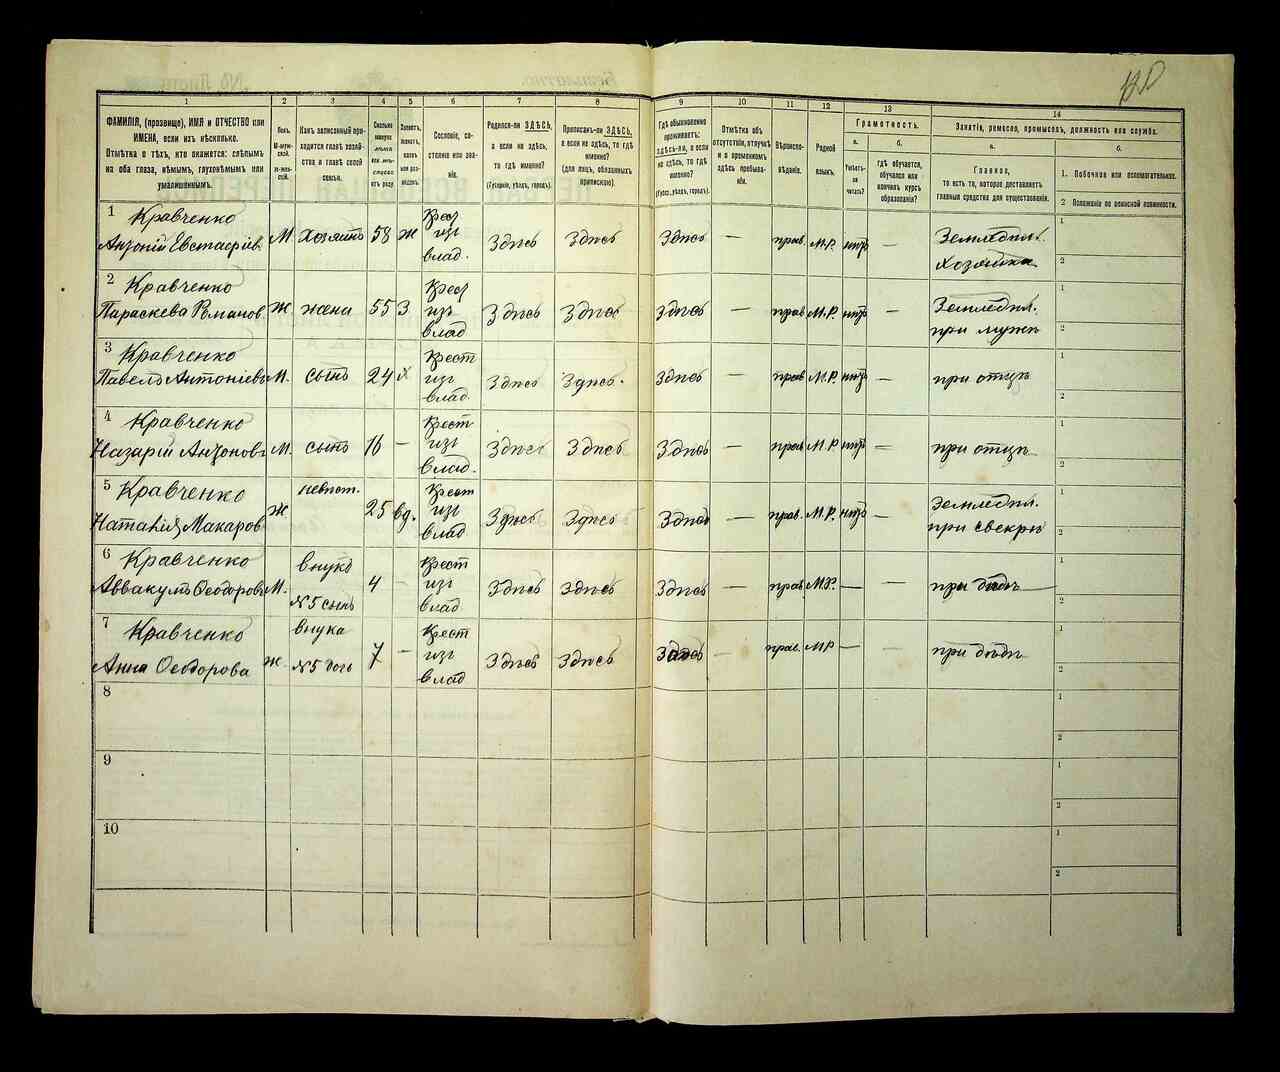 1
2
3
4
5
6
7
8
9
10
11
12
13
14
ФАМИЛІЯ, (прозвище), ИМЯ и ОТЧЕСТВО или
ИМЕНА, если ихъ нѣсколько.
Отмѣтка о тѣхъ, кто окажется: слѣпымъ
на оба глаза, нѣмымъ, глухонѣмымъ или
умалишеннымъ.
Полъ.
М-муж-
ской.
Ж-жен-
скій.
Какъ записанный при-
ходится главѣ хозяй-
ства и главѣ своей
семьи.
Сколько
минуло
лѣтъ
или мѣ-
сяцевъ
отъ роду
Холостъ,
женатъ,
вдовъ
или раз-
веденъ.
Сословіе, со-
стояніе или зва-
ніе.
Родился-ли ЗДѢСЬ,
а если не здѣсь,
то гдѣ именно?
(Губернія, уѣздъ, городъ).
Приписанъ-ли ЗДѢСЬ,
а если не здѣсь, то гдѣ
именно?
(для лицъ, обязанныхъ
припискою).
Гдѣ обыкновенно
проживаетъ:
ЗДѢСЬ-ли, а если
не здѣсь, то гдѣ
именно?
(Губер., уѣздъ, городъ).
Отмѣтка объ
отсутствіи, отлучкѣ
и о временномъ
здѣсь пребыва-
ніи.
Вѣроиспо-
вѣданіе.
Родной
языкъ.
Грамотность.
а.
б.
Умѣетъ-
ли
читать?
Гдѣ обучается,
обучался или
кончилъ курсъ
образованія?
Занятіе, ремесло, промыселъ, должность или служба.
а.
б.
Главное,
то есть то, которое доставляетъ
главныя средства для существованія.
1. Побочное или вспомогательное.
2 Положеніе по воинской повинности.
1 Кравченко
Антоній Евстафіев М. хозяинъ 58 ж Крест из влад. Здѣсь Здѣсь Здѣсь — прав. М.Р. нтъ — Земледѣл. хозяйка
1
2
2 Кравченко
Параскева Романов Ж жена 55 З Крест из влад Здѣсь Здѣсь Здѣсь — прав М.Р. нтъ — Земледѣл. при мужѣ
1
2
3 Кравченко
Павелъ Антоніев М. сынъ 24 х Крест из влад. Здѣсь Здѣсь. Здѣсь — прав М.Р. нтъ — при отцѣ
1
2
4 Кравченко
Назарій Антонов М. сынъ 16 — Крест из влад. Здѣсь Здѣсь Здѣсь — прав М.Р. нтъ — при отцѣ
1
2
5 Кравченко
Наталія Макаров Ж невѣст. 25 вд. Крест из влад Здѣсь Здѣсь Здѣсь — прав. М.Р. нтъ — Земледѣл. при свекрѣ
1
2
6 Кравченко
Аввакумъ Ѳеодоров М. внукъ №5 сынъ 4 — Крест из влад. Здѣсь Здѣсь Здѣсь — прав М.Р. — — при дѣдѣ
1
2
7 Кравченко
Анна Ѳеодорова Ж. внука №5 дочь 7 — Крест из влад Здѣсь Здѣсь Здѣсь — прав. М.Р — — при дѣдѣ
1
2
8
1
2
9
1
2
10
1
2